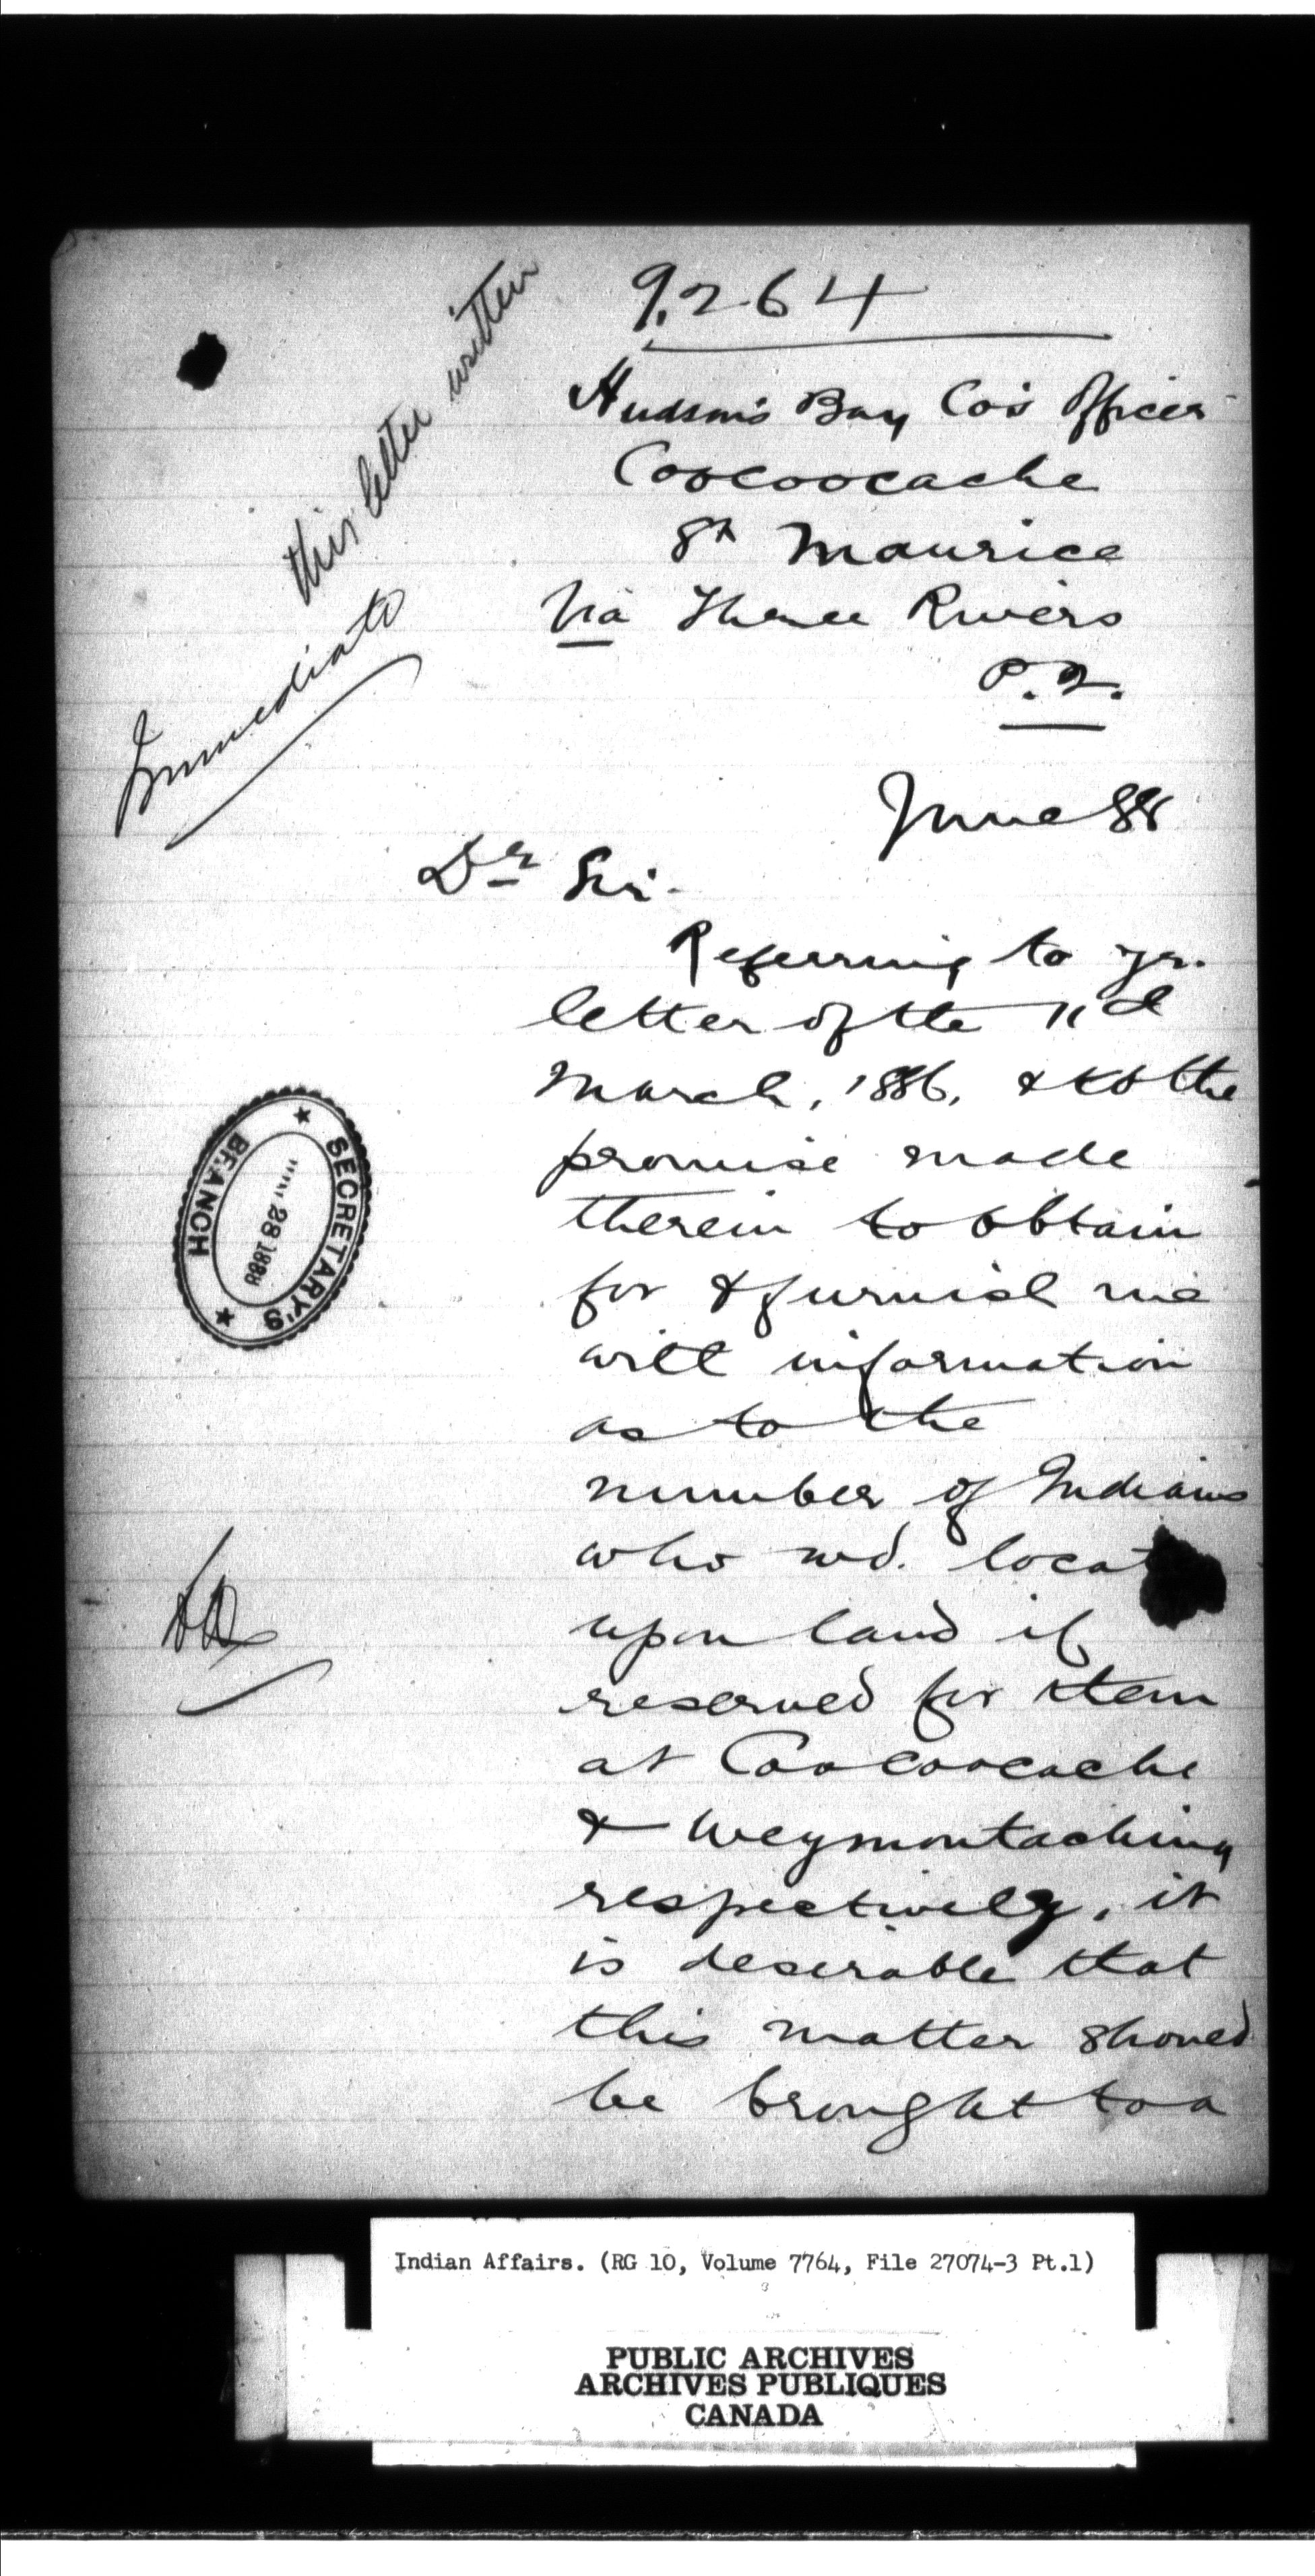 9,264
this letter written
Immediate
Hudson's Bay Co's Officer
Coocoocache
St Maurice
Via Three Rivers
P.Q.
June 88
Dr Sir.
Referring to yr.
letter of the 11d
March, 1886, & to the
promise made
therein to obtain
for & furnish me
with information
as to the
number of Indians
who wd. locate
upon land if
reserved for them
at Coocoocache
& Weymontaching
respectively, it
is desirable that
this matter should
be brought to a
SECRETARY'S
BRANCH
28 1888
Indian Affairs. (RG 10, Volume 7764, File 27074-3 Pt.1)
PUBLIC ARCHIVES
ARCHIVES PUBLIQUES
CANADA